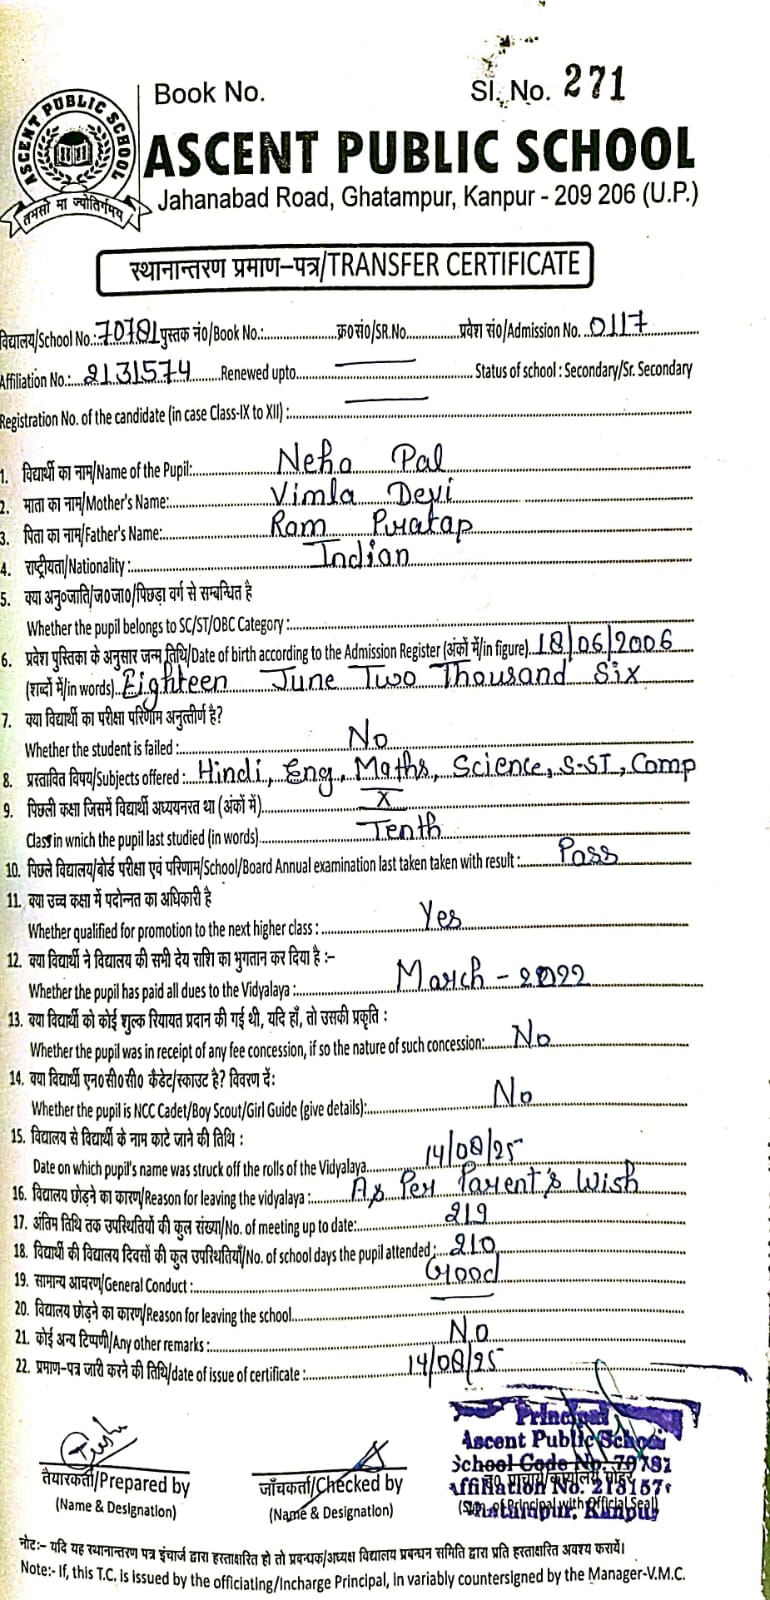 Book No.
Sl. No. 271
ASCENT PUBLIC SCHOOL
तमसो मा ज्योतिर्गमय
ASCENT PUBLIC SCHOOL
Jahanabad Road, Ghatampur, Kanpur - 209 206 (U.P.)
स्थानान्तरण प्रमाण–पत्र/TRANSFER CERTIFICATE
विद्यालय/School No.: 70781 पुस्तक नं०/Book No.: क्र०सं०/SR.No. प्रवेश सं०/Admission No. 0117
Affiliation No.: 2131574 Renewed upto Status of school : Secondary/Sr. Secondary
Registration No. of the candidate (in case Class-IX to XII) :
1. विद्यार्थी का नाम/Name of the Pupil: Neha Pal
2. माता का नाम/Mother's Name: Vimla Devi
3. पिता का नाम/Father's Name: Ram Pratap
4. राष्ट्रीयता/Nationality : Indian
5. क्या अनु०जाति/ज०जा०/पिछड़ा वर्ग से सम्बन्धित है
Whether the pupil belongs to SC/ST/OBC Category :
6. प्रवेश पुस्तिका के अनुसार जन्म तिथि/Date of birth according to the Admission Register (अंकों में/in figure) 18/06/2006
(शब्दों में/in words) Eighteen June Two Thousand Six
7. क्या विद्यार्थी का परीक्षा परिणाम अनुत्तीर्ण है?
Whether the student is failed : No
8. प्रस्तावित विषय/Subjects offered : Hindi, Eng, Maths, Science, S-ST, Comp
9. पिछली कक्षा जिसमें विद्यार्थी अध्ययनरत था (अंकों में) X
Class in wnich the pupil last studied (in words) Tenth
10. पिछले विद्यालय/बोर्ड परीक्षा एवं परिणाम/School/Board Annual examination last taken taken with result : Pass
11. क्या उच्च कक्षा में पदोन्नत का अधिकारी है
Whether qualified for promotion to the next higher class : Yes
12. क्या विद्यार्थी ने विद्यालय की सभी देय राशि का भुगतान कर दिया है :–
Whether the pupil has paid all dues to the Vidyalaya : March - 2022
13. क्या विद्यार्थी को कोई शुल्क रियायत प्रदान की गई थी, यदि हाँ, तो उसकी प्रकृति :
Whether the pupil was in receipt of any fee concession, if so the nature of such concession: No
14. क्या विद्यार्थी एन०सी०सी० कैडेट/स्काउट है? विवरण दें:
Whether the pupil is NCC Cadet/Boy Scout/Girl Guide (give details): No
15. विद्यालय से विद्यार्थी के नाम काटे जाने की तिथि :
Date on which pupil's name was struck off the rolls of the Vidyalaya 14/08/25
16. विद्यालय छोड़ने का कारण/Reason for leaving the vidyalaya : As Per Parent's Wish
17. अंतिम तिथि तक उपस्थितियों की कुल संख्या/No. of meeting up to date: 219
18. विद्यार्थी की विद्यालय दिवसों की कुल उपस्थितियाँ/No. of school days the pupil attended : 210
19. सामान्य आचरण/General Conduct : Good
20. विद्यालय छोड़ने का कारण/Reason for leaving the school
21. कोई अन्य टिप्पणी/Any other remarks : No
22. प्रमाण–पत्र जारी करने की तिथि/date of issue of certificate : 14/08/25
Principal
Ascent Public School
School Code No. 70781
Affiliation No. 213157
Ghatampur, Kanpur
तैयारकर्ता/Prepared by
(Name & Designation)
जाँचकर्ता/Checked by
(Name & Designation)
(Sign. of Principal with Official Seal)
नोट:– यदि यह स्थानान्तरण पत्र इंचार्ज द्वारा हस्ताक्षरित हो तो प्रबन्धक/अध्यक्ष विद्यालय प्रबन्धन समिति द्वारा प्रति हस्ताक्षरित अवश्य करायें।
Note:- If, this T.C. is issued by the officiating/Incharge Principal, in variably countersigned by the Manager-V.M.C.